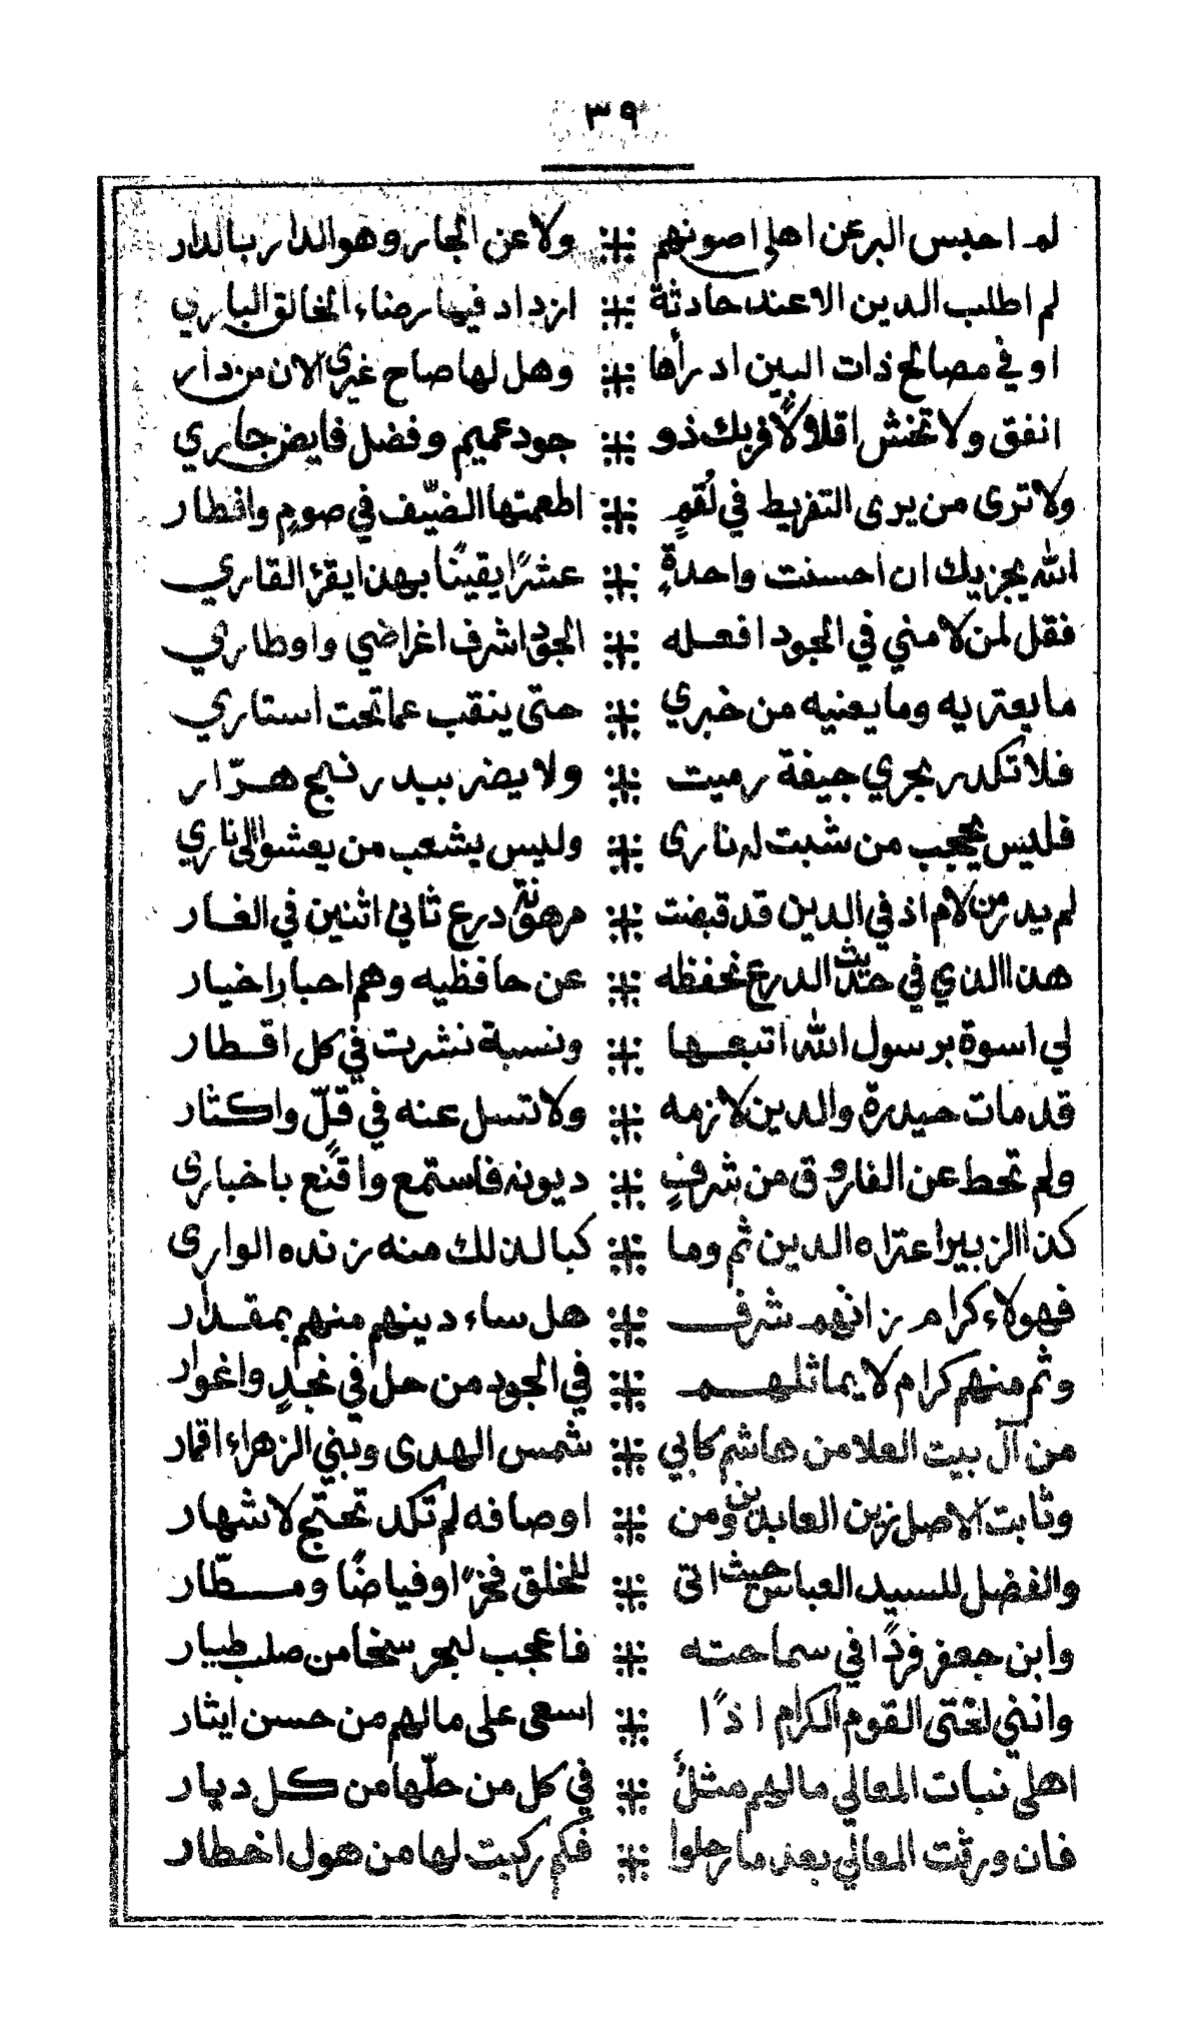 ٣٩
لم احبس البر عن اهلي اصونهم ولا عن الجار وهو الدار بالدار
لم اطلب الدين الا عند حادثة ازداد فيها رضاء الخالق الباري
او في مصالح ذات البين ادرأها وهل لها صاح غيري الان من دار
انفق ولا تخش اقلالًا فربك ذو جود عميم وفضل فايض جاري
ولا ترى من يرى التفريط في لُقمٍ اطعمتها الضيّف في صومٍ وافطار
الله يجزيك ان احسنت واحدةٍ عشرًا يقينًا بهذا يقرئ القاري
فقل لمن لامني في الجود افعله الجود اشرف اغراضي واوطاري
ما يعتريه وما يعنيه من خبري حتى ينقب عما تحت استاري
فلا تكدر بحري جيفة رميت ولا يضر ببدر نبح هرّار
فليس يحجب من شبت له ناري وليس يشعب من يعشو الى ناري
لم يدر من لام اذ في الدين قد قبضت مرهونة درع ثاني اثنين في الغار
هذا الذي في حديث الدرع نحفظه عن حافظيه وهم احبار اخيار
لي اسوة برسول الله اتبعها ونسبة نشرت في كل اقطار
قد مات حيدرة والدين لازمه ولا تسل عنه في قلّ واكثار
ولم تحط عن الفاروق من شرفٍ ديونه فاستمع واقنع باخباري
كذا الزبير اعتراه الدين ثم وما كبا لذلك منه زنده الوارى
فهولاء كرام زانهم شرف هل ساء دينهم منهم بمقدار
وثم منهم كرام لا يماثلهم في الجود من حل في نجدٍ واغوار
من آل بيت العلا من هاشم كابي شمس الهدى وبني الزهراء اقمار
وثابت الاصل زين العابدين ومن اوصافه لم تكد تحتج لاشهار
والفضل للسيد العباس حيث اتى للخلق فخرًا وفياضًا ومسطّار
وابن جعفر فردًا في سماحته فاعجب لبحر سخا من صلب طيار
وانني لفتى القوم الكرام اذًا اسعى على مالهم من حسن ايثار
اهلى نبات المعالي مالهم مثلٌ في كل من حلّها من كل ديار
فان ورثت المعالي بعد ما رحلوا فكم ركبت لها من هول اخطار